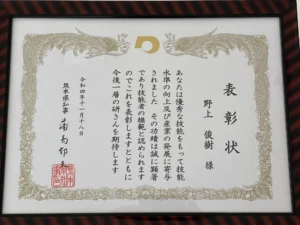 表彰状
野上 俊樹 様
あなたは優秀な技能をもって技能
水準の向上及び産業の発展に寄与
されました その功績は誠に顕著
であり技能者の模範と認められます
のでこれを表彰しますとともに
今後一層の研さんを期待します
令和四年十一月十八日
熊本県知事